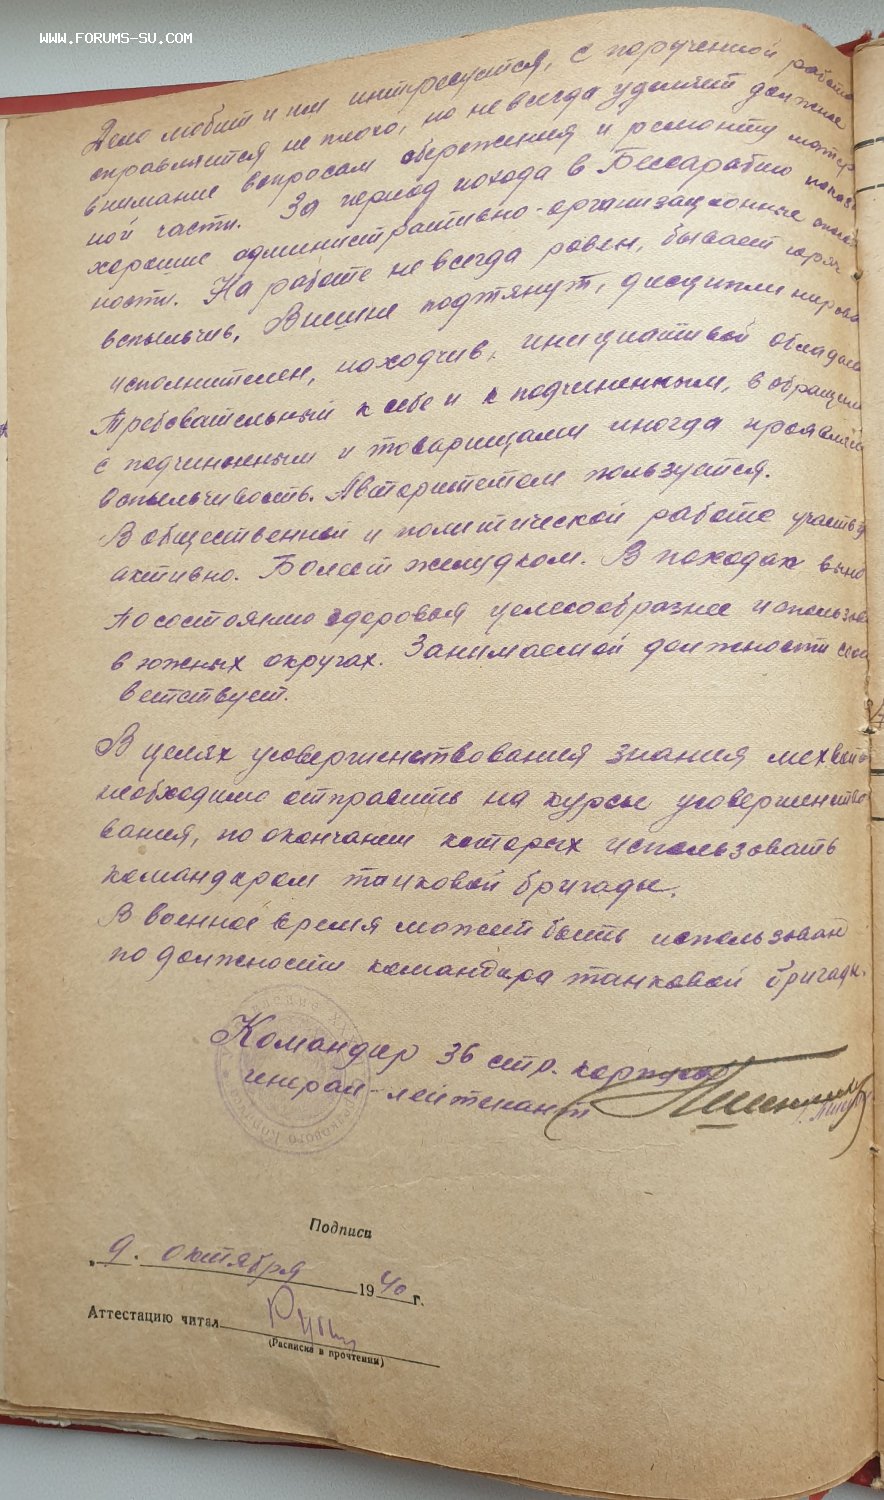 WWW.FORUMS-SU.COM
Дело любит и им интересуется, с порученной работой
справляется не плохо, но не всегда уделяет должное
внимание вопросам сбережения и ремонту матер
ной части. За период похода в Бессарабию показал
хорошие административно-организационные способ
ности. На работе не всегда ровен, бывает горяч
вспыльчив, Внешне подтянут, дисциплинирова
исполнителен, находчив, инициативой обладает
Требовательный к себе и к подчиненным, в обращении
с подчиненными и товарищами иногда проявляет
вспыльчивость. Авторитетом пользуется.
В общественной и политической работе участвуе
активно. Болеет желудком. В походах вынос
По состоянию здоровья целесообразнее использова
в южных округах. Занимаемой должности соот
ветствует.
В целях усовершенствования знания мехвойск
необходимо отправить на курсы усовершенство
вания, по окончании которых использовать
командиром танковой бригады.
В военное время может быть использован
по должности командира танковой бригады.
Командир 36 стр. корпуса
генерал-лейтенант
Подписи
„9. октября 1940 г.
Аттестацию читал
(Расписка в прочтении)